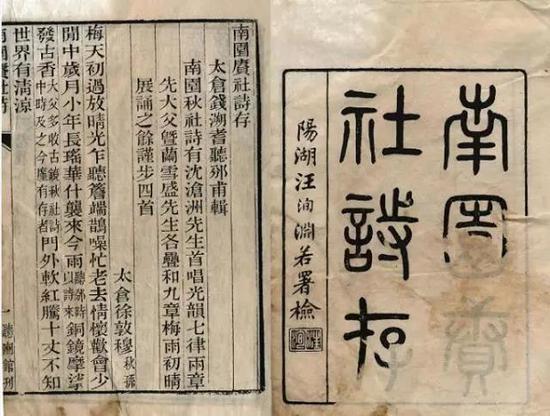 南園賡
社詩存
陽湖汪洵淵若署檢
南園賡社詩存
太倉錢溯耆聽邠甫輯
南園秋社詩有沈滄洲先生首唱光韻七律兩章
先大父暨蘭雪盛先生各疊和九章梅雨初晴
展誦之餘謹步四首
太倉徐敦穆秋
梅天初過放晴光乍聽簷端鵲噪忙老去情懷歡會少
閒中歲月小年長瑤華什襲來今雨聽邠時以詩來銅鏡摩挲
發古香大父多收古鏡秋社詩中時及之今廑有存者門外軟紅騰十丈不知
世界有清涼
南園賡社詩
一
聽邠館刊